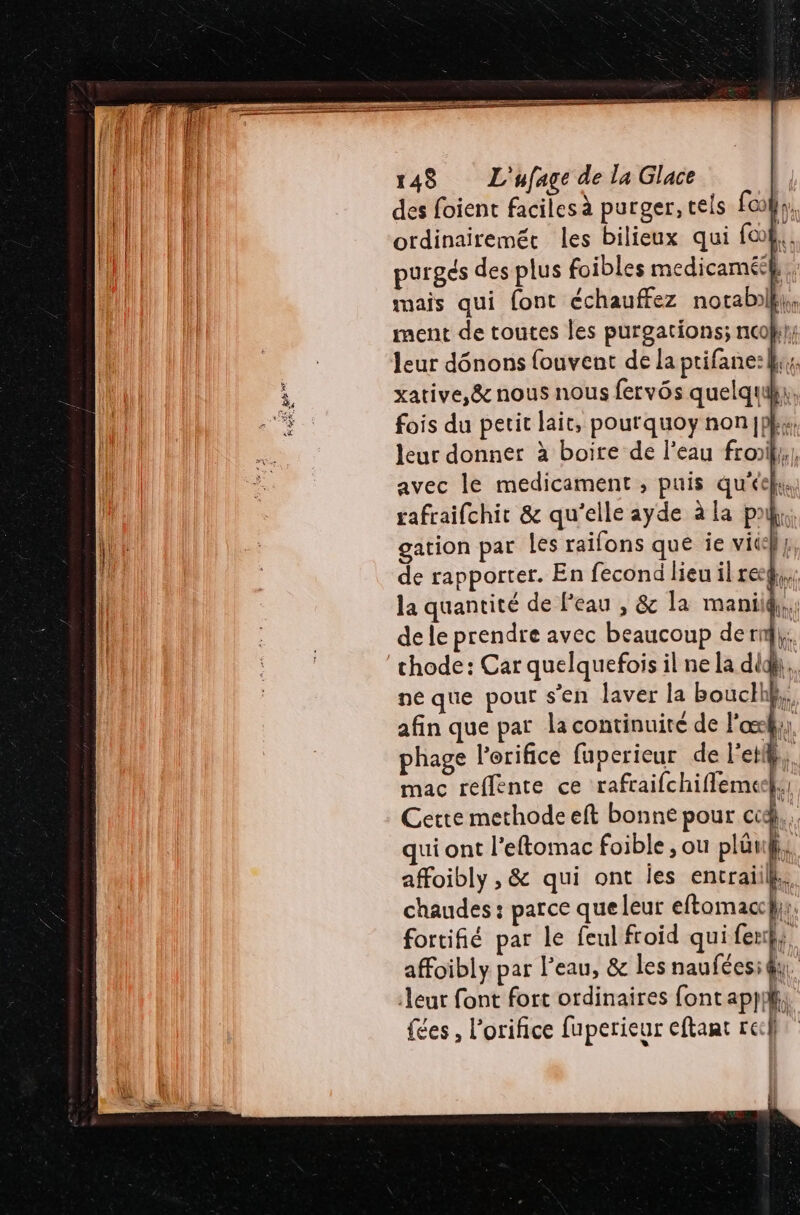 148 L'uſage de la Glace
des ſoient faciles à purger, tels
ordinairemét les bilieux qui
purgés des plus foibles
mais qui ſont échauffez
ment de toutes les purgations;
leur dónons ſouvent de la ptiſane
xative,& nous nous ſervós
fois du petit lait, pourquoy non
leur donner à boire de l'eau
avec le medicament, puis
rafraiſchit & qu'elle ayde à la
gation par les raiſons que ie
de rapporter. En ſecond lieu il
la quantité de l'eau, & la
de le prendre avec beaucoup de
thode: Car quelquefois il ne la
ne que pour s'en laver la
afin que par la continuité de
phage l'orifice ſuperieur de
mac reſſente ce
Cette methode eſt bonne pour
qui ont l'eſtomac foible, ou
affoibly, & qui ont les
chaudes: parce que leur
fortifié par le ſeul froid qui
affoibly par l'eau, & les nauſées
leur ſont fort ordinaires ſont
ſées, l'orifice ſuperieur eſtant